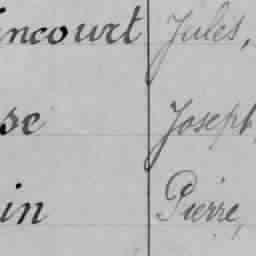 incourt Jules,
se Joseph,
in Pierre,